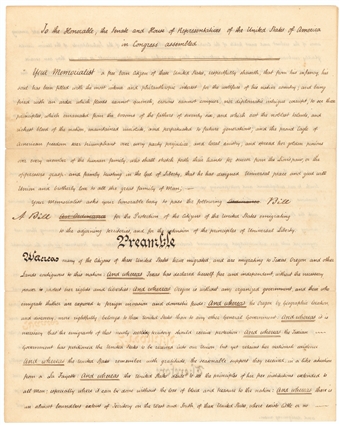 To the Honorable, the Senate and House of Representatives of the United States of America
in Congress assembled
Your Memorialist a free born citizen of these United States, respectfully sheweth, that from his infancy his
soul has been filled with the most ardent and philanthropic interest for the welfare of his native country; and being
fired with an ardor which
principles which
blood of the and perpetuated to future generations; and the proud Eagle of
American freedom and local jealousy, and spread her golden pinions
over every member of the human family who shall stretch forth their hands for succor from the Lion's paw, or the
oppressors grasp; and firmly trusting in the love of Liberty, that he has designed Universal peace and good will
Union and brotherly love to all the great family of Man,
Your Memorialist asks your honorable body to pass the following Bill
A Bill for the Protection of the Citizens of the United States emigrating
to the adjoining territories, and for the extension of the principles of Universal Liberty.
Preamble
Whereas many of the citizens of these United States have migrated, and are migrating to Texas, Oregon and other
lands contiguous to this nation; And whereas Texas has declared herself free and independent without the necessary
power to protect her rights and liberties: And whereas Oregon is without any organized government, and those who
emigrate thither are exposed to foreign invasion and domestic feuds: And whereas the Oregon by Geographical location,
and discovery more rightfully belongs to these United States than to any other General Government: And whereas it is
necessary that the emigrants of that newly settling territory should receive protection: And whereas the Texian
Government has petitioned the United States to be received into our Union, but yet retains her national existence:
And whereas the United States remember with gratitude the seasonable support they received, in a like situation
from a La Fayette: And whereas the United States desire to see the principles of her free institutions extended to
all men; especially where it can be done without the loss of blood and treasure to the nation: And whereas there is
an almost boundless extent of territory on the West and South of these United States, where exists little or no